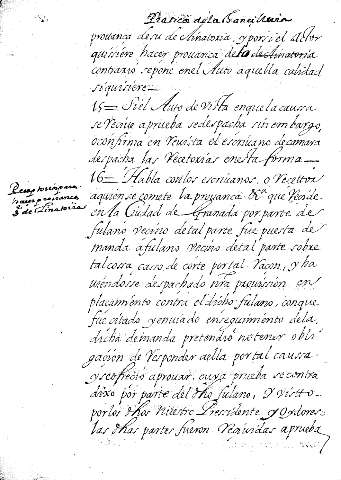 Pratica de la Chancilleria
prouança de su declinatoria, y por si el Actor
quisiere hacer prouança de lo declinatoria
contrario se pone en el Auto aquella calidad
si quisiere
15 = Si el Auto de Vista en que la caussa
se Reciue a prueba se despacha sin embargo,
o confirma en Reuista el escriuano de camara
despacha las Recetorias en esta forma
16 = Habla con los escriuanos, o Receptor
a quien se comete la prouança que Reside
en la Ciudad de Granada por parte de
fulano vecino de tal parte fue puesta de
manda a fulano vecino de tal parte sobre
tal cossa, caso de corte por tal Raçon, y ha
uiendosse despachado nra prouission en
placamiento contra el dicho fulano, con que
fue citado y en uiado en seguimiento de la
dicha demanda pretendio no tener obli
gacion de Responder a ella por tal caussa
y se ofrecio a prouar, cuya prueba se contra
dixo por parte del dho fulano, Y visto
por los dhos Nuestro Pressidente y Oydores
las dhas partes fueron Reciuidas a prueba
Receptoria para
hacer prouança
de declinatoria